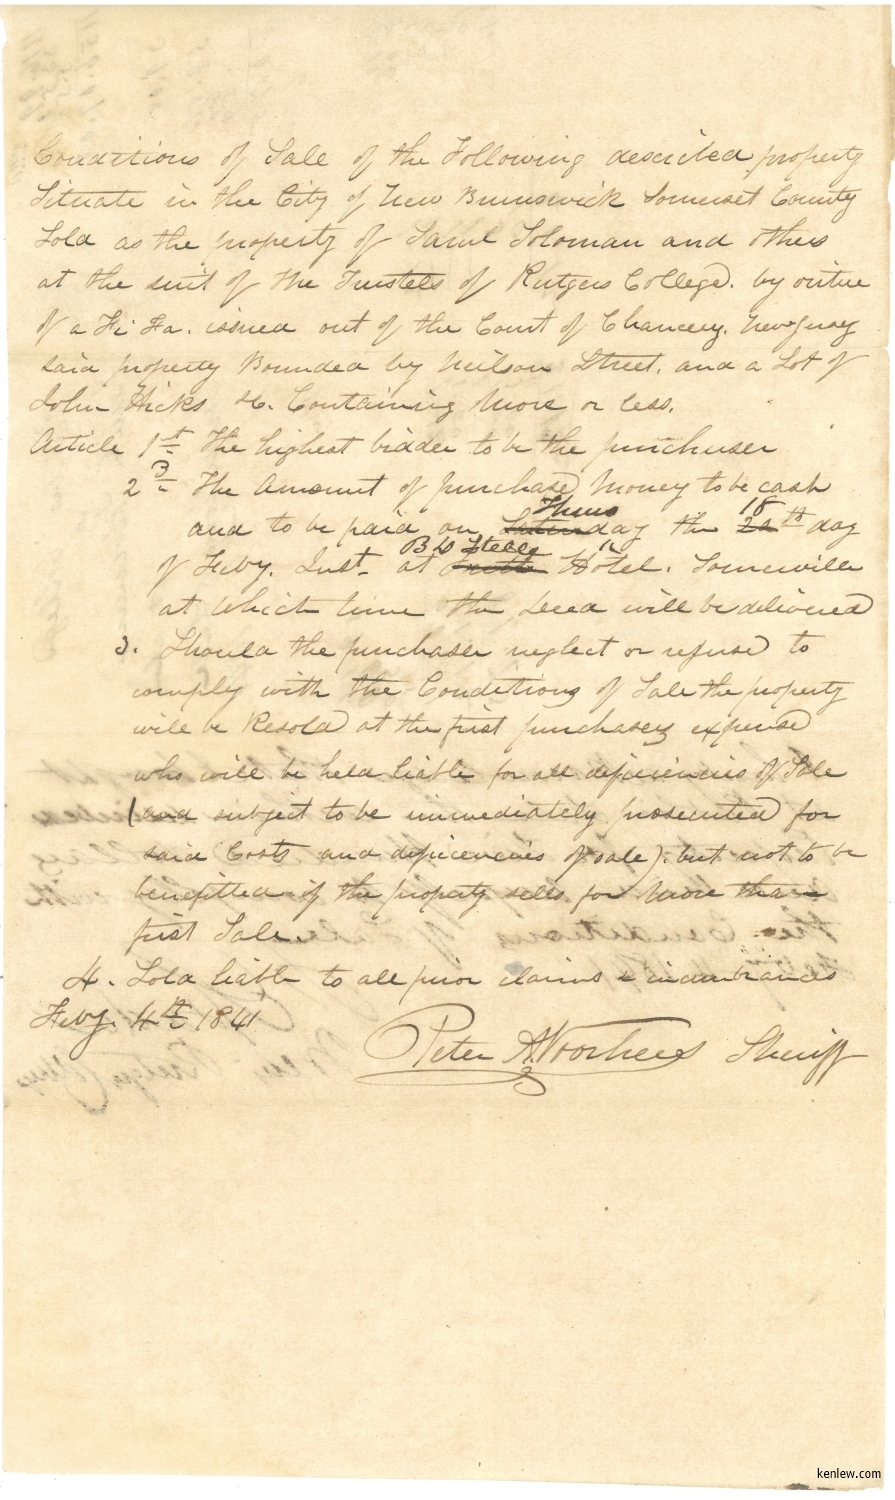 Conditions of Sale of the Following described property
Situate in the City of New Brunswick Somerset County
Sold as the property of Saml Soloman and others
at the suit of the Trustels of Rutgers College. by virtue
of a Fi Fa. issued out of the Court of Chancery. New Jersey
said property Bounded by Neilson Street. and a Lot of
John Hicks &c. Containing More or less.
Article 1st The highest bidder to be the purchaser
2d The Amount of purchase Money to be cash
Thurs 18
and to be paid on Saturday the 20th day
B W Steele
of Feby. Inst. at Hotel. Somerville
at which time the Deed will be delivered
3. Should the purchaser neglect or refuse to
comply with the Conditions of Sale the property
will be Resold at the first purchasers expense
who will be held liable for all deficiencies of Sale
(and subject to be immediately prosecuted for
said Costs and deficiencies of sale). but not to be
benefitted if the property sells for More than
first Sale.
4. Sold liable to all prior claims & incumbrances
Feby. 4th 1841
Peter A Voorhees Sheriff
kenlew.com